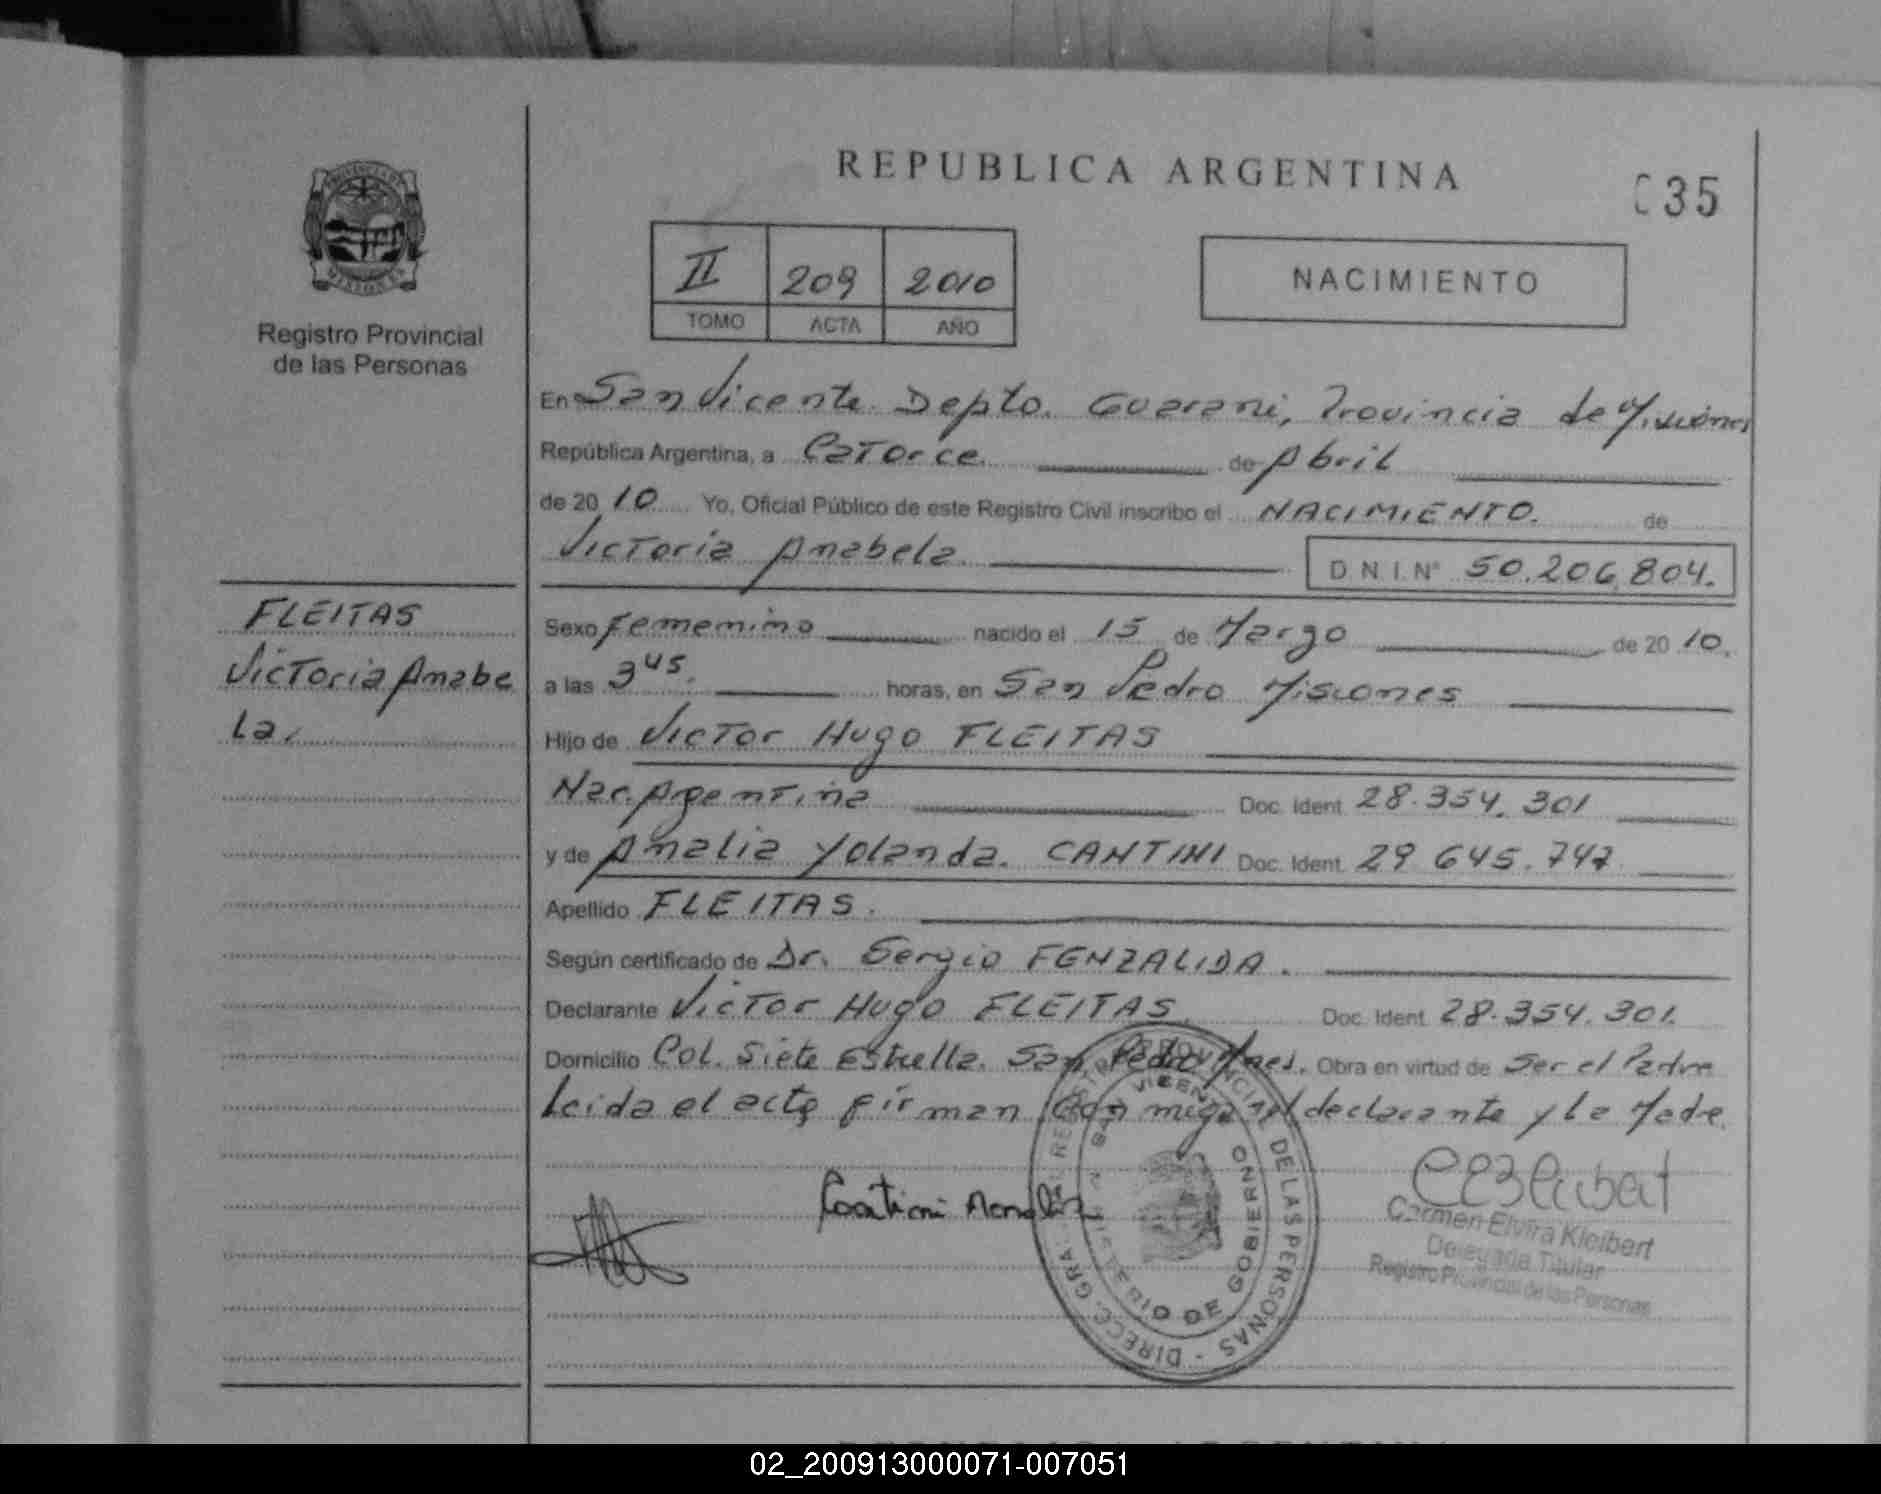 REPUBLICA ARGENTINA
35
II 209 2010
TOMO ACTA AÑO
NACIMIENTO
Registro Provincial
de las Personas
En San Vicente Depto. Guarani, Provincia de Misiones
República Argentina, a Catorce de Abril
de 20 10 Yo, Oficial Público de este Registro Civil inscribo el NACIMIENTO. de
Victoria Anabela. D.N.I.Nº 50.206.804.
FLEITAS
Victoria Anabe
la.
Sexo Femenino nacido el 15 de Marzo de 20 10.
a las 3 45. horas, en San Pedro Misiones
Hijo de Victor Hugo FLEITAS
Nac. Argentina Doc. Ident. 28.354.301
y de Amalia Yolanda. CANTINI Doc. Ident. 29.645.747
Apellido FLEITAS.
Según certificado de Dr. Sergio FENZALIDA.
Declarante Victor Hugo FLEITAS. Doc. Ident. 28.354.301.
Domicilio Col. Siete Estrella. San Pedro Mnes. Obra en virtud de Ser el Padre
Leida el acta firman con migo el declarante y la Madre.
Cantini
Carmen Elvira Kleibert
Delegada Titular
Registro Provincial de las Personas
DIRECC. GRAL. REGISTRO PROVINCIAL DE LAS PERSONAS
SAN VICENTE
MINISTERIO DE GOBIERNO
02_200913000071-007051